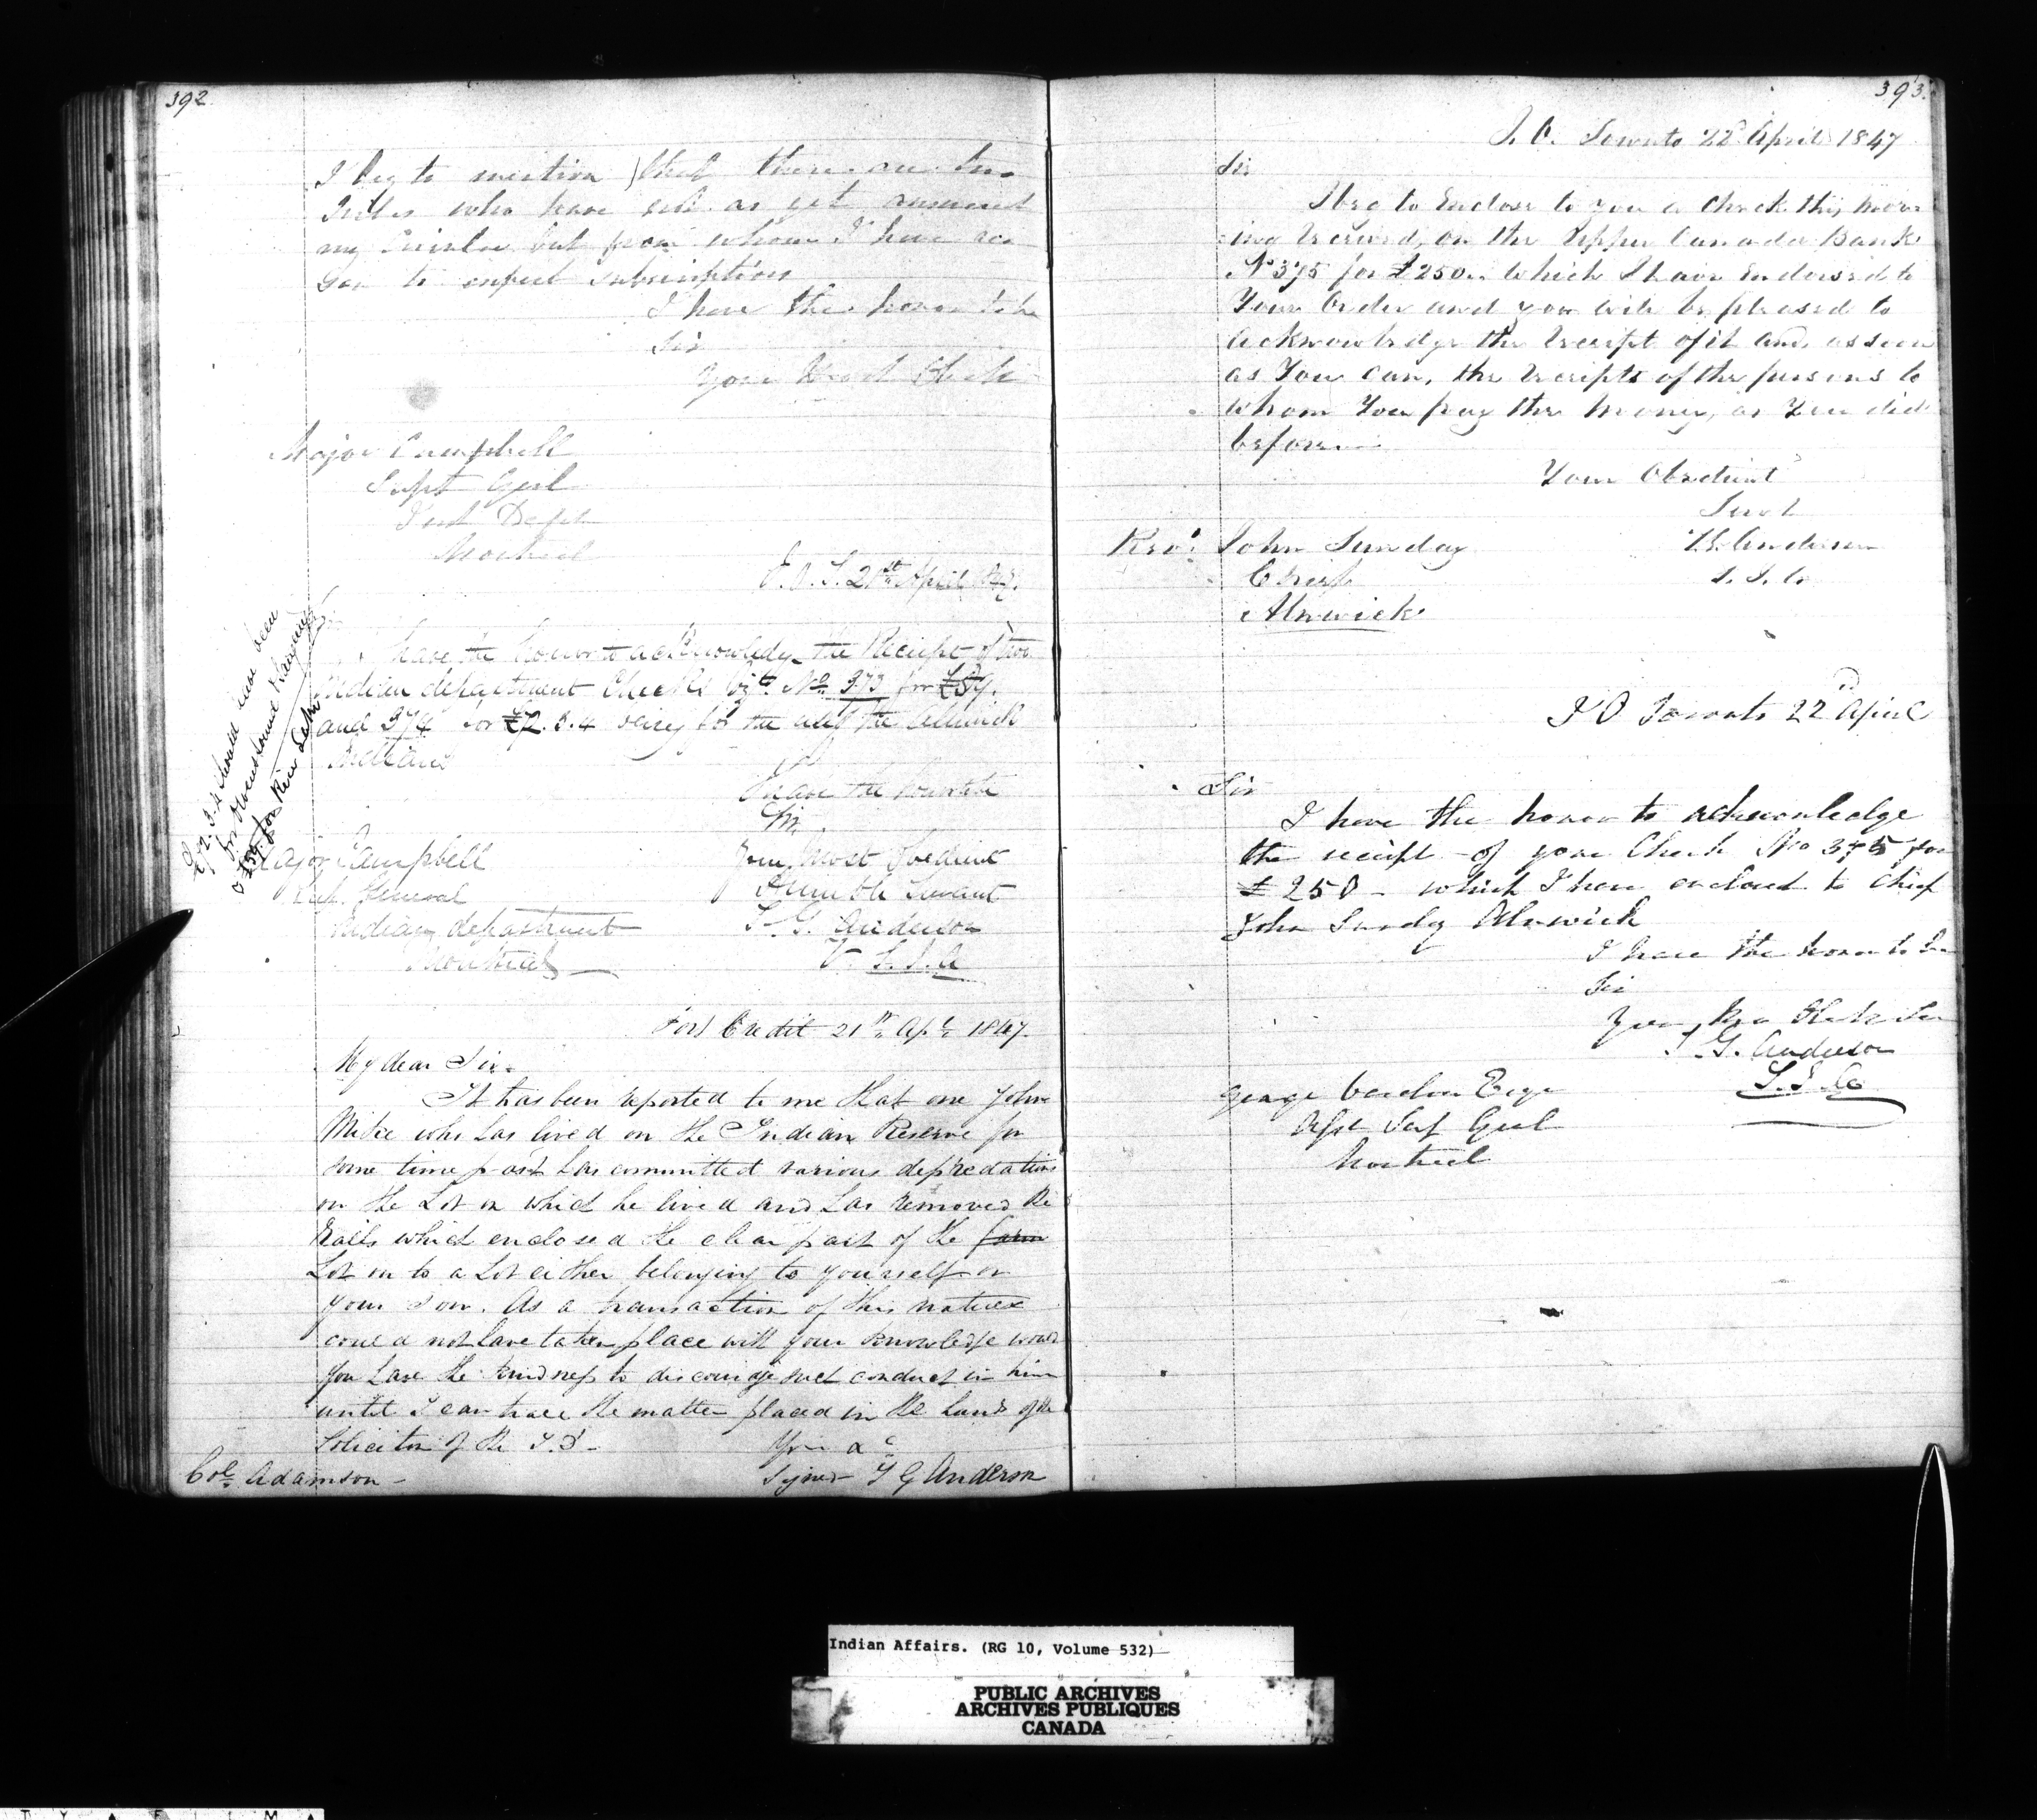 392
I beg to mention that there are two
Tribes who have not as yet answered
my Circular but from whom I have rea
son to expect subscriptions
I have the honor to be
Sir
Your Most Obedt
Major Campbell
Supt Genl
Ind Dept
Montreal
I. O. T. 21st April 1847.
have the honor to acknowledge the Receipt of two
Indian department Checks viz No. 373 for £59.
and 374 for £72.3.4 being for the use of the Alnwick
Indians
I have the honor to be
Sir
Your Most Obedient
Humble Servant
T. G. Anderson
V. S. I. A
Major Campbell
General
Indian department
Montreal
£72.3.4 should have been
for Owen Sound
& £59. for Rice Lake
Port Credit 21st Apl 1847.
My dear Sir.
It has been reported to me that one John
Mike who has lived on the Indian Reserve for
some time past has committed various depredations
on the Lot on which he lived and has removed the
Rails which enclosed the clear part of the farm
Lot on to a Lot either belonging to yourself or
your son. As a transaction of this nature
could not have taken place with your knowledge would
you have the kindness to discourage such conduct in him
until I can have the matter placed in the hands of the
Solicitor of the I. D.
Yours &c
Signed T G Anderson
Col. Adamson
393.
I. O. Toronto 22d April 1847
Sir
I beg to Enclose to you a Check this morn
ing received, on the Upper Canada Bank
No 375 for £250.. which I have Endorsed to
Your Order and you will be pleased to
acknowledge the receipt of it and as soon
as You can, the receipts of the persons to
whom You pay the money, as You did
before
Your Obedient
Servt
T. G. Anderson
S. I. A.
Revd. John Sunday
Chief
Alnwick
I O Toronto 22nd April
Sir
I have the honor to acknowledge
the receipt of your Check No 375 for
£250 - which I have enclosed to Chief
John Sunday Alnwick
I have the honor to be
Sir
Your Mo Obedt Ser
T. G. Anderson
S. I. A
George Vardon Esqr
Asst Sup Genl
Montreal
Indian Affairs. (RG 10, Volume 532)
PUBLIC ARCHIVES
ARCHIVES PUBLIQUES
CANADA